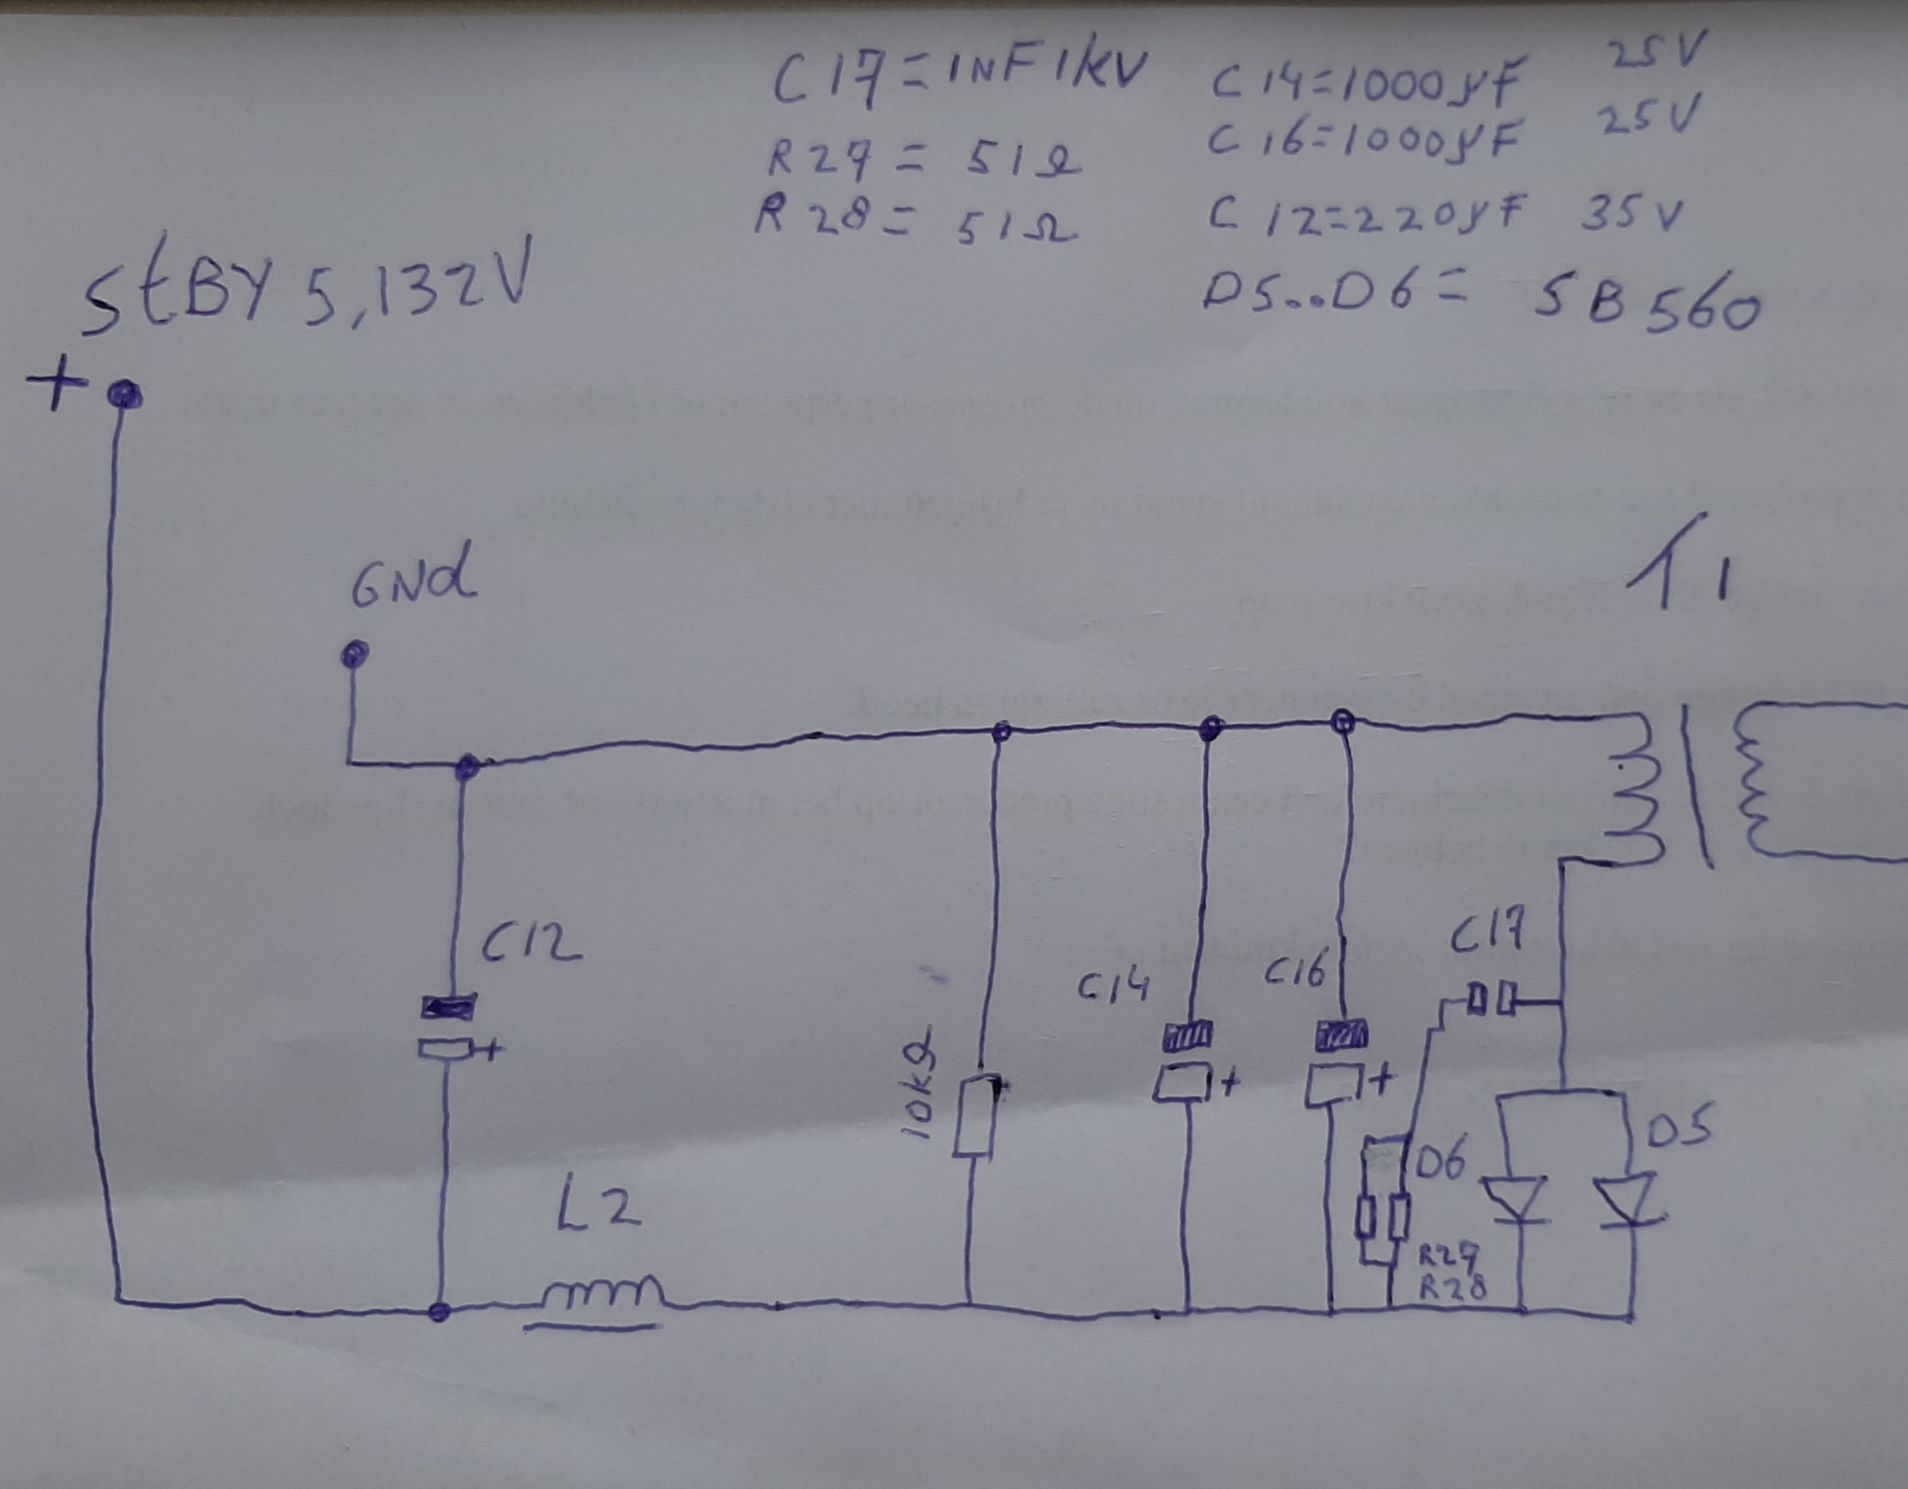 C17=1NF1kV
R27 = 51Ω
R28 = 51Ω
C14=1000µF 25V
C16=1000µF 25V
C12=220µF 35V
D5..D6= SB560
StBY 5,132V
+
GNd
T1
C12
+
C14
+
C16
+
C17
10kΩ
D6
D5
L2
R27
R28